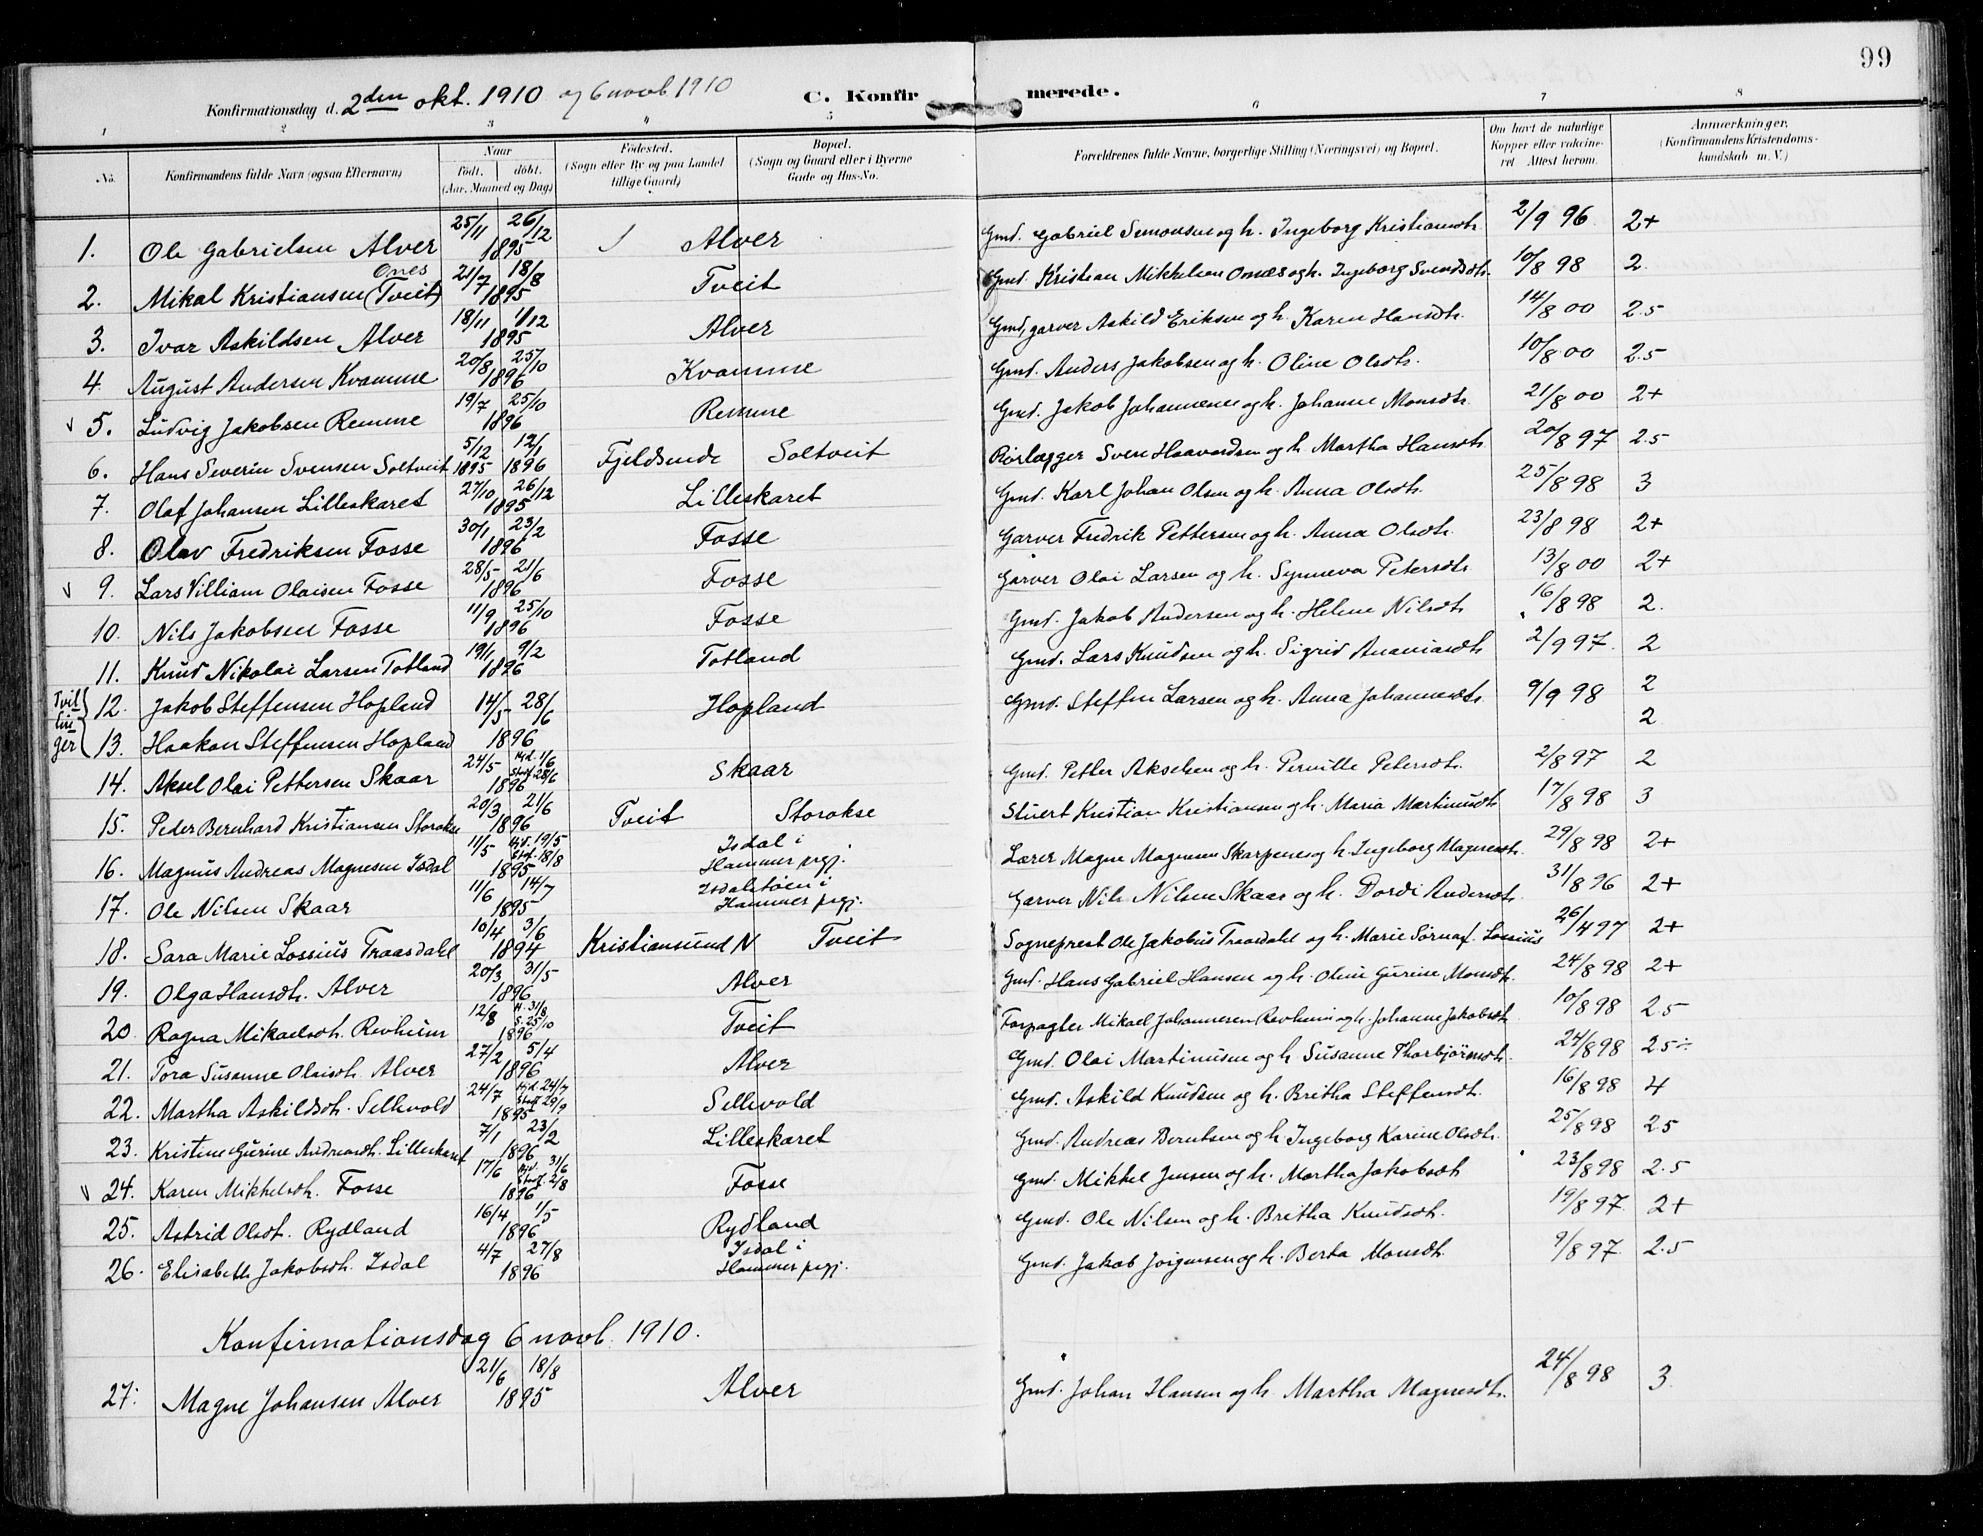 99
Konfirmationsdag d. 2den okt. 1910 og 6 novb 1910 C. Konfirmerede.
1 2 3 4 5 6 7 8
No. Konfirmandens fulde Navn (ogsaa Efternavn) Naar født. døbt. (Aar. Maaned og Dag) Fødested. (Sogn eller By og paa Landet tillige Gaard) Bopæl. (Sogn og Gaard eller i Byerne Gade og Hus-No. Forældrenes fulde Navne, borgerlige Stilling (Næringsvei) og Bopæl. Om havt de naturlige Kopper eller vaccineret. Attest herom. Anmærkninger. (Konfirmandens Kristendomskundskab m. V.)
1. Ole Gabrielsen Alver 25/11 26/12 1895 Alver Gmd. Gabriel Simonsen og h. Ingeborg Kristiansdh. 2/9 96 2+
2. Mikal Kristiansen (Tveit) Ones 21/7 18/8 1895 Tveit Gmd. Kristian Mikkelsen Onæs og h. Ingeborg Svendsdh. 10/8 98 2.
3. Ivar Askildsen Alver 18/11 1/12 1895 Alver Gmd, garver Askild Eriksen og h. Karen Hansdh. 14/8 00 2.5
4. August Andersen Kvamme 20/8 25/10 1896 Kvamme Gmd. Anders Jakobsen og h. Oline Olsdh. 10/8 00 2.5
5. Ludvig Jakobsen Remme 19/7 25/10 1896 Remme Gmd. Jakob Johannesen og h. Johanne Monsdh. 21/8 00 2+
6. Hans Severin Svensen Soltveit 5/12 1895 12/1 1896 Fjeldsende Soltveit Rørlægger Sven Haavardsen og h Martha Hansdh 20/8 97 2.5
7. Olaf Johansen Lilleskaret 27/10 26/12 1895 Lilleskaret Gmd. Karl Johan Olsen og h. Anna Olsdh. 25/8 98 3
8. Olav Fredriksen Fosse 30/1 23/2 1896 Fosse Garver Fredrik Pettersen og h. Anna Olsdh. 23/8 98 2+
9. Lars Villiam Olaisen Fosse 28/5 21/6 1896 Fosse Garver Olai Larsen og h. Synneva Petersdh. 13/8 00 2+
10. Nils Jakobsen Fosse 11/9 25/10 1896 Fosse Gmd. Jakob Andersen og h. Helene Nilsdh 16/8 98 2.
11. Knud Nikolai Larsen Totland 19/1 9/2 1896 Totland Gmd. Lars Knudsen og h. Sigrid Ananiasdh 2/9 97. 2
Tvillinger
12. Jakob Steffensen Hopland 14/5 28/6 Hopland Gmd. Steffen Larsen og h. Anna Johannesdh. 9/9 98 2
13. Haakon Steffensen Hopland 1896 2
14. Aksel Olai Pettersen Skaar 24/5 Hjd. 1/6 Stf. 28/6 1896 Skaar Gmd. Petter Akselsen og h. Pernille Petersdh. 2/8 97 2
15. Peder Bernhard Kristiansen Storakse 20/3 21/6 1896 Tveit Storakse Stuert Kristian Kristiansen og h. Maria Martinusdh 17/8 98 3
16. Magnus Andreas Magnesen Isdal 11/5 Hjd. 19/5 Stf. 18/8 1895 Isdal i Hammer prgj. Lærer Magne Magnesen Skarpenes og h. Ingeborg Magnesdh. 29/8 98 2+
17. Ole Nilsen Skaar 11/6 14/7 1895 Isdalstøen i Hammer prgj. Garver Nils Nilsen Skaar og h. Dordi Andersdh. 31/8 96 2+
18. Sara Marie Lossius Traasdahl 10/4 3/6 1894 Kristiansund N Tveit Sogneprest Ole Jakobus Traasdahl og h. Marie Sørna f. Lossius 26/4 97 2+
19. Olga Hansdh. Alver 20/3 31/5 1896 Alver Gmd. Hans Gabriel Hansen og h. Oline Gurine Monsdh. 24/8 98 2+
20. Ragna Mikaelsdh. Revheim 12/8 H. 31/8 S. 25/10 1896 Tveit Forpagter Mikael Johannesen Revheim og h. Johanne Jakobsdh. 10/8 98 2.5
21. Tora Susanne Olaisdh. Alver 27/2 5/4 1896 Alver Gmd. Olai Martinusen og h Susanne Thorbjørnsdh. 24/8 98 2.5÷
22. Martha Askildsdh. Sellevold 24/7 Hjd. 24/7 Stf. 29/9 1895 Sellevold Gmd. Askild Knudsen og h. Britha Steffensdh. 16/8 98 4
23. Kristine Gurine Andreasdh. Lilleskaret 7/1 23/2 1896 Lilleskaret Gmd. Andreas Berntsen og h Ingeborg Karine Olsdh. 25/8 98 2.5
24. Karen Mikkelsdh. Fosse 17/6 Hjd. 31/6 Stf. 2/8 1896 Fosse Gmd. Mikkel Jensen og h. Martha Jakobsdh 23/8 98 2.5
25. Astrid Olsdh. Rydland 16/4 1/5 1896 Rydland Gmd. Ole Nilsen og h. Britha Knudsdh. 19/8 97 2+
26. Elisabeth Jakobsdh. Isdal 4/7 27/8 1896 Isdal i Hammer prgj. Gmd. Jakob Jørgensen og h. Berta Monsdh. 9/8 97 2.5
Konfirmationsdag 6 novb. 1910.
27. Magne Johansen Alver 21/6 18/8 1895 Alver Gmd. Johan Hansen og h. Martha Magnesdh. 24/8 98 3.